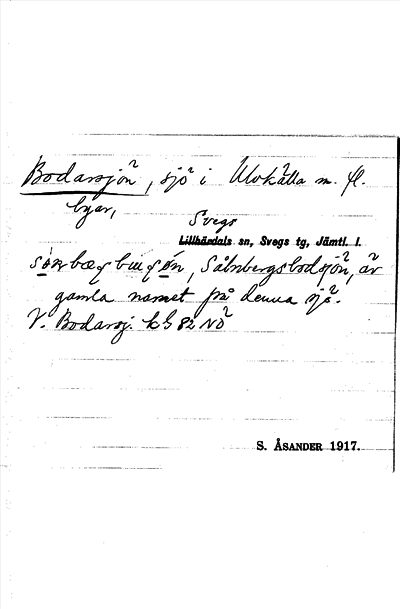 Bodarsjön, sjö i Ulvkälla m. fl.
byar,
Svegs
Lillhärdals sn, Svegs tg, Jämtl. l.
Sålnbergsbodsjön, är
gamla namnet på denna sjö.
V. Bodarsj. kG 82 NÖ
S. ÅSANDER 1917.